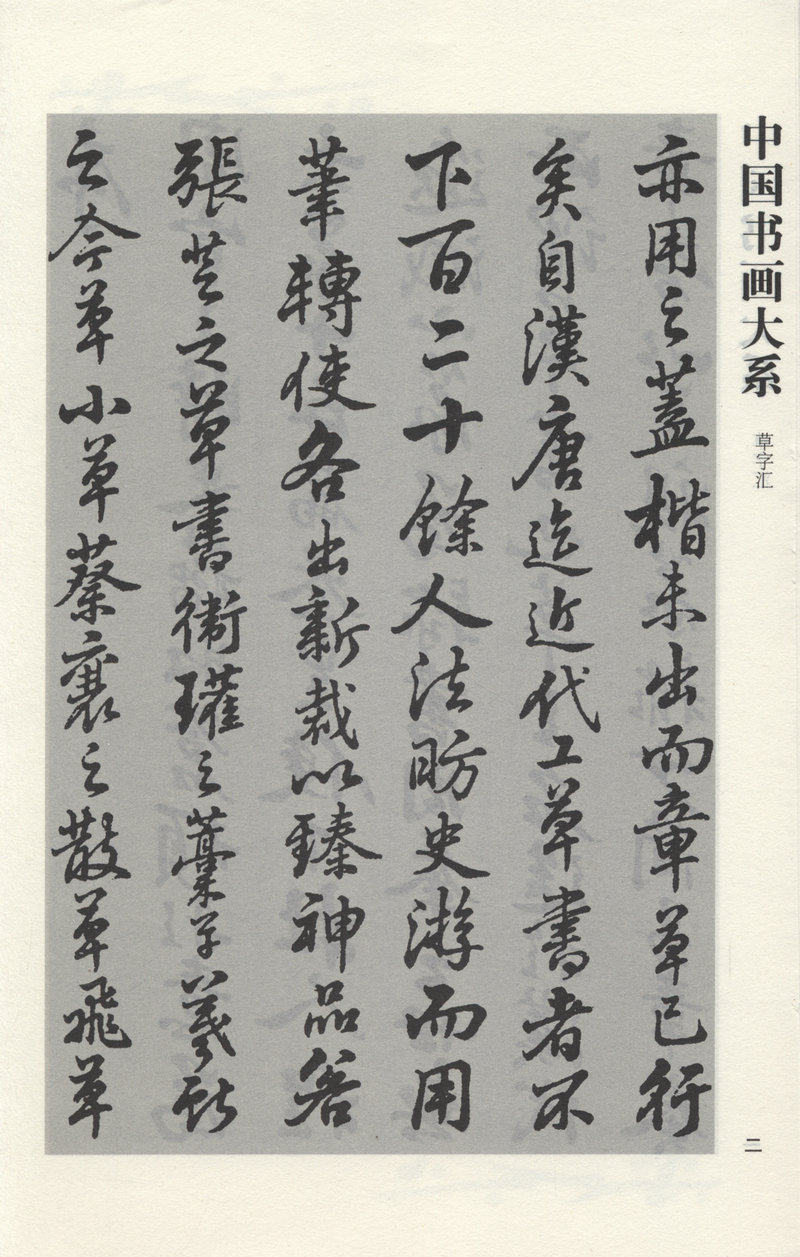 中国书画大系
草字汇
亦用之蓋楷未出而章草已行
矣自漢唐迄近代工草書者不
下百二十餘人法昉史游而用
筆轉使各出新裁以臻神品若
張芝之草書衛瓘之藁草羲獻
之今草小草蔡襄之散草飛草
二